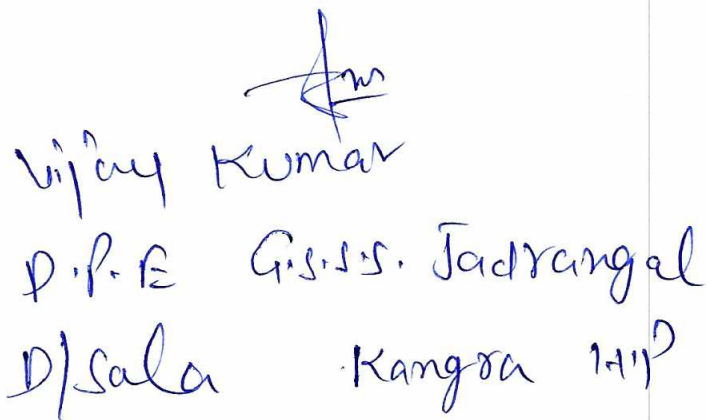 Vijay Kumar
D.P.E G.S.S.S. Jadrangal
D/Sala Kangra H.P